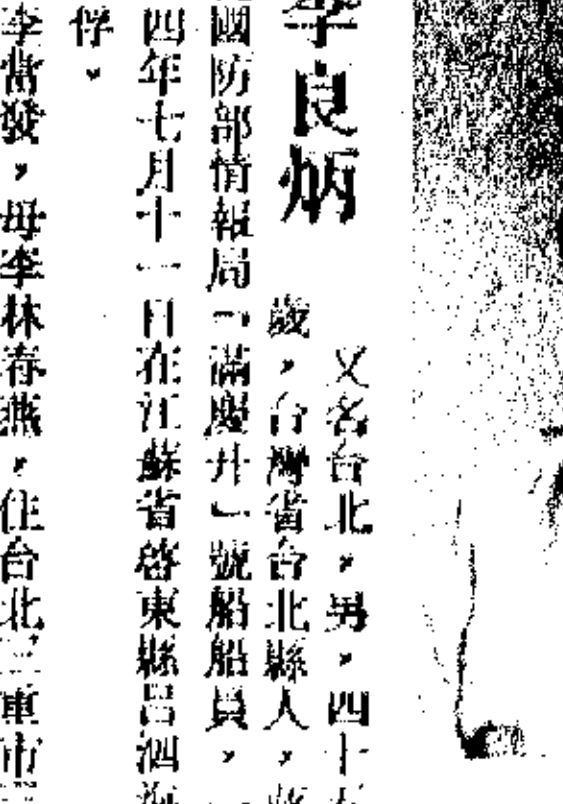 李良炳
又名台北，男，四十五
歲，台灣省台北縣人，蔣
國防部情報局「滿慶升」號船船員，一
四年七月十一日在江蘇省啓東縣呂泗海
俘。
李當發，母李林春燕，住台北三重市